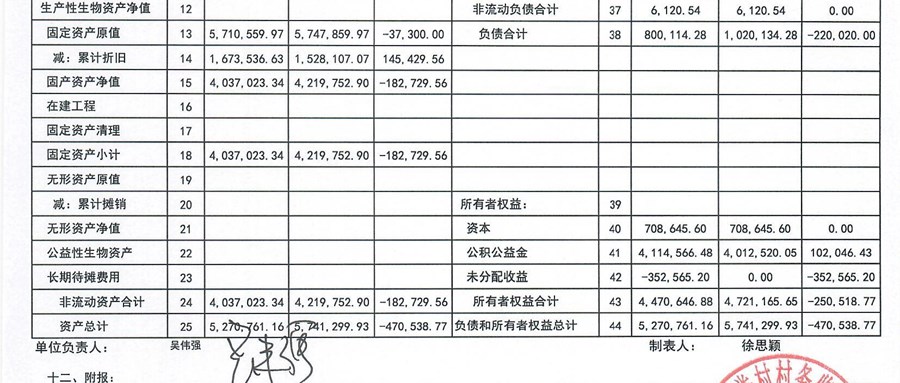 生产性生物资产净值 12 非流动负债合计 37 6,120.54 6,120.54 0.00
固定资产原值 13 5,710,559.97 5,747,859.97 -37,300.00 负债合计 38 800,114.28 1,020,134.28 -220,020.00
减：累计折旧 14 1,673,536.63 1,528,107.07 145,429.56
固产资产净值 15 4,037,023.34 4,219,752.90 -182,729.56
在建工程 16
固定资产清理 17
固定资产小计 18 4,037,023.34 4,219,752.90 -182,729.56
无形资产原值 19
减：累计摊销 20 所有者权益： 39
无形资产净值 21 资本 40 708,645.60 708,645.60 0.00
公益性生物资产 22 公积公益金 41 4,114,566.48 4,012,520.05 102,046.43
长期待摊费用 23 未分配收益 42 -352,565.20 0.00 -352,565.20
非流动资产合计 24 4,037,023.34 4,219,752.90 -182,729.56 所有者权益合计 43 4,470,646.88 4,721,165.65 -250,518.77
资产总计 25 5,270,761.16 5,741,299.93 -470,538.77 负债和所有者权益总计 44 5,270,761.16 5,741,299.93 -470,538.77
单位负责人： 吴伟强 制表人： 徐思颖
十二、附报：
村村务监